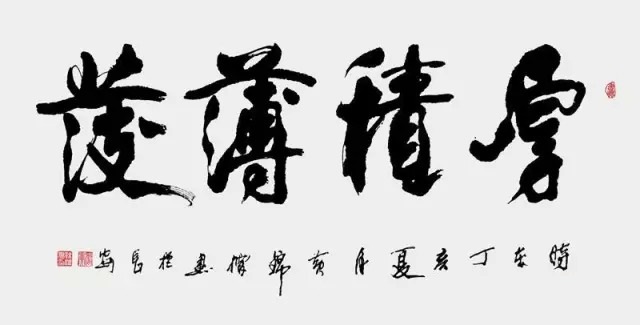 厚積薄發
時在丁亥夏月黃錦書於長安